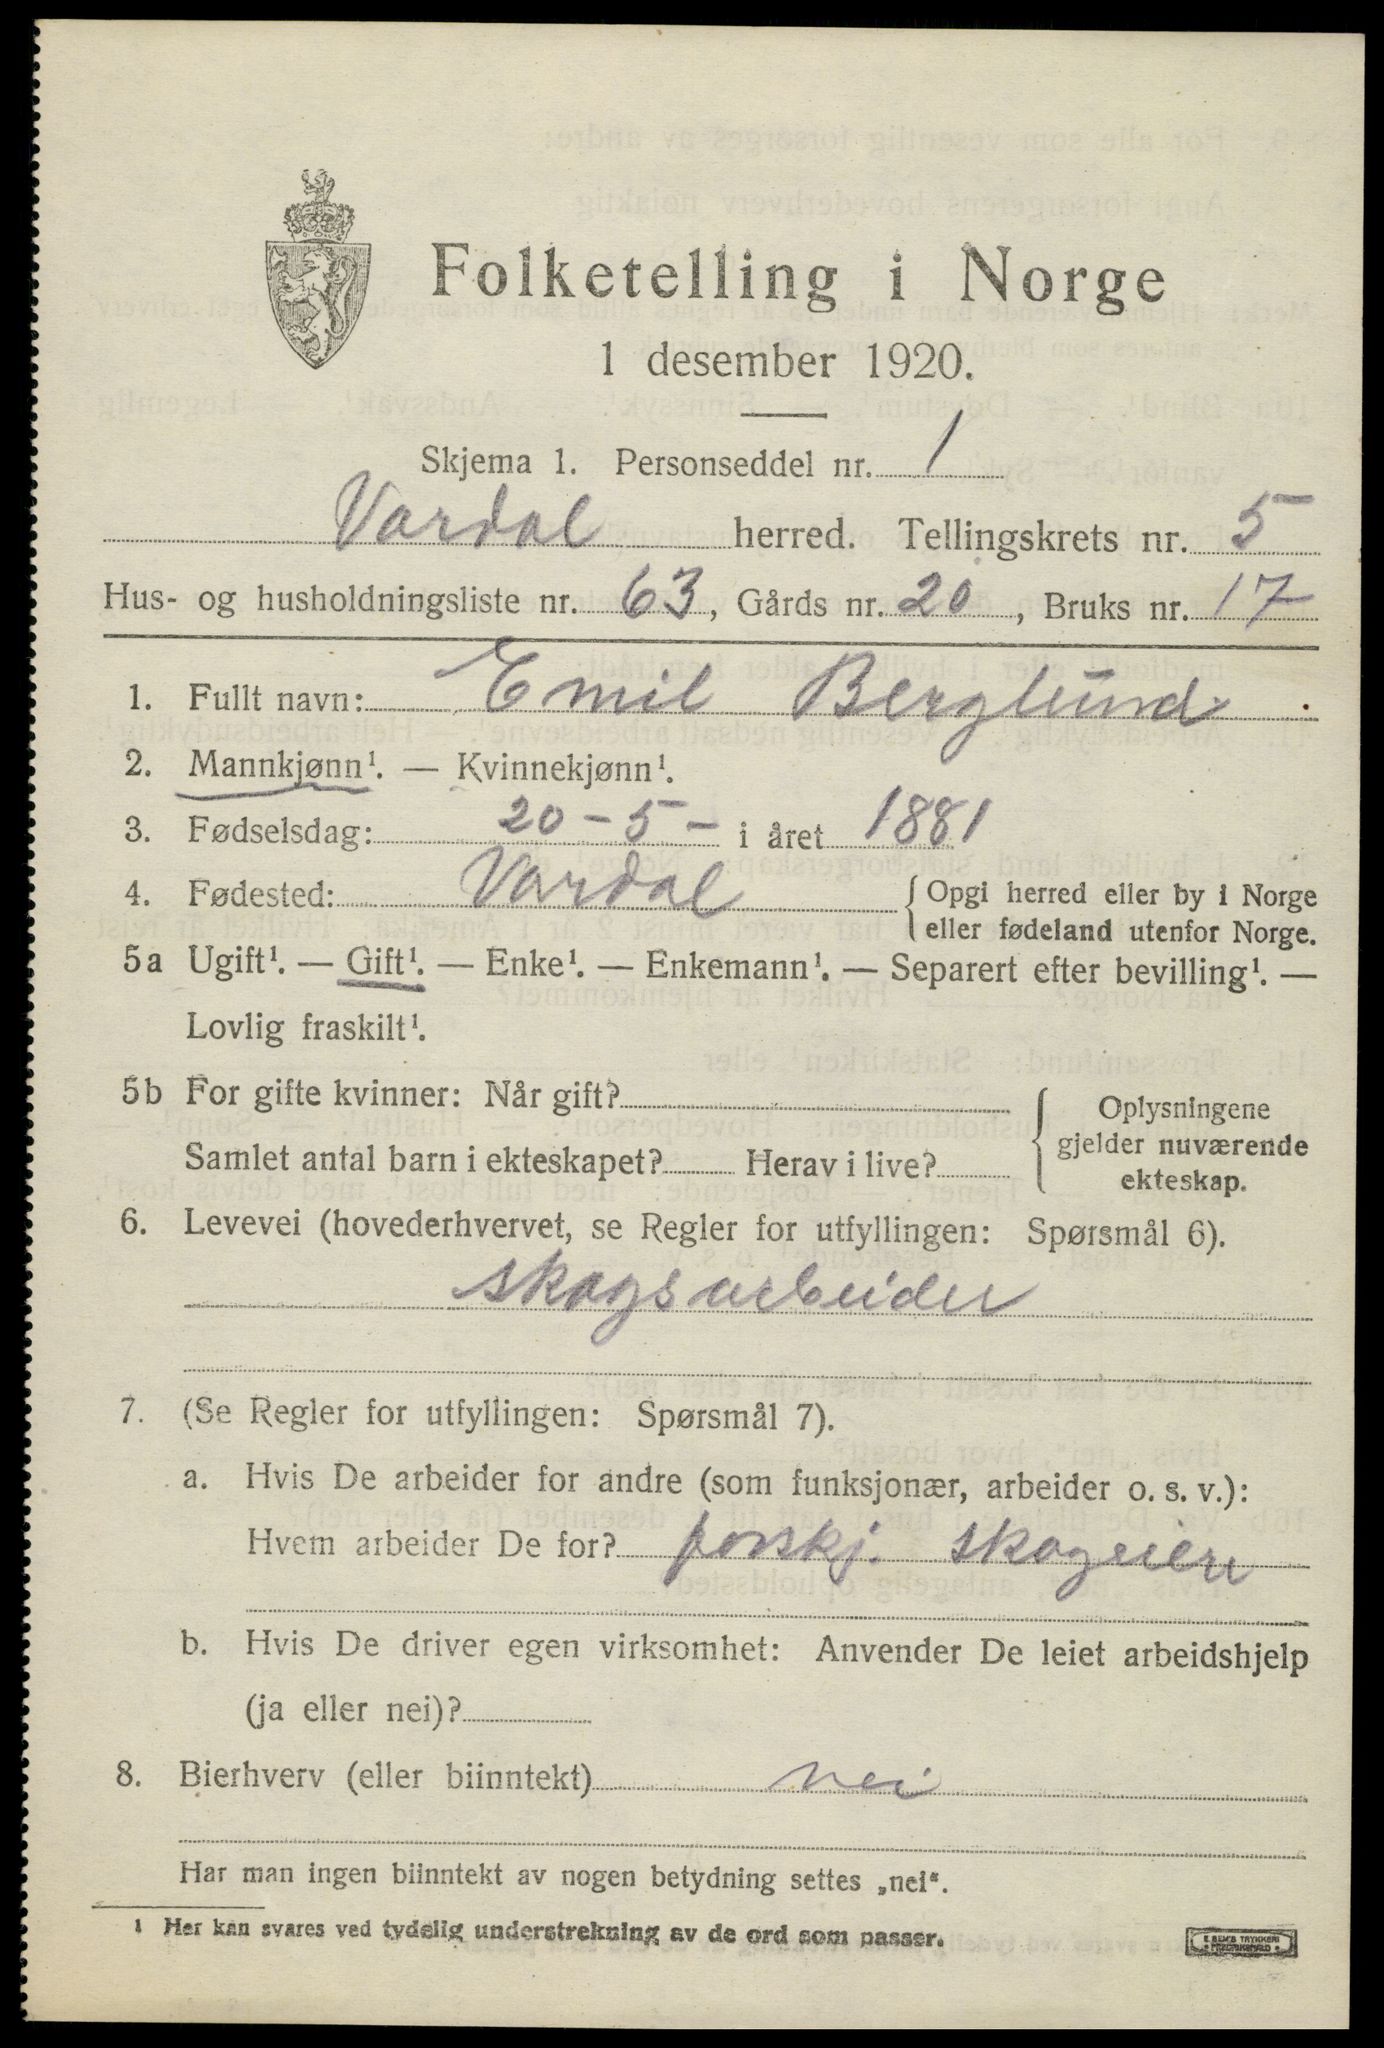 Folketelling i Norge
1 desember 1920.
Skjema 1. Personseddel nr. 1
Vardal herred. Tellingskrets nr. 5
Hus- og husholdningsliste nr. 63, Gårds nr. 20, Bruks nr. 17
1. Fullt navn: Emil Berglund.
2. Mannkjønn¹. — Kvinnekjønn¹.
3. Fødselsdag: 20-5- i året 1881
4. Fødested: Vardal
Opgi herred eller by i Norge
eller fødeland utenfor Norge.
5a Ugift¹. — Gift¹. — Enke¹. — Enkemann¹. — Separert efter bevilling¹. —
Lovlig fraskilt¹.
5b For gifte kvinner: Når gift?
Samlet antal barn i ekteskapet? Herav i live?
Oplysningene
gjelder nuværende
ekteskap.
6. Levevei (hovederhvervet, se Regler for utfyllingen: Spørsmål 6).
skogsarbeider
7. (Se Regler for utfyllingen: Spørsmål 7).
a. Hvis De arbeider for andre (som funksjonær, arbeider o. s. v.):
Hvem arbeider De for? forskj. skogeiere
b. Hvis De driver egen virksomhet: Anvender De leiet arbeidshjelp
(ja eller nei)?
8. Bierhverv (eller biinntekt) nei
Har man ingen biinntekt av nogen betydning settes „nei“.
¹ Her kan svares ved tydelig understrekning av de ord som passer.